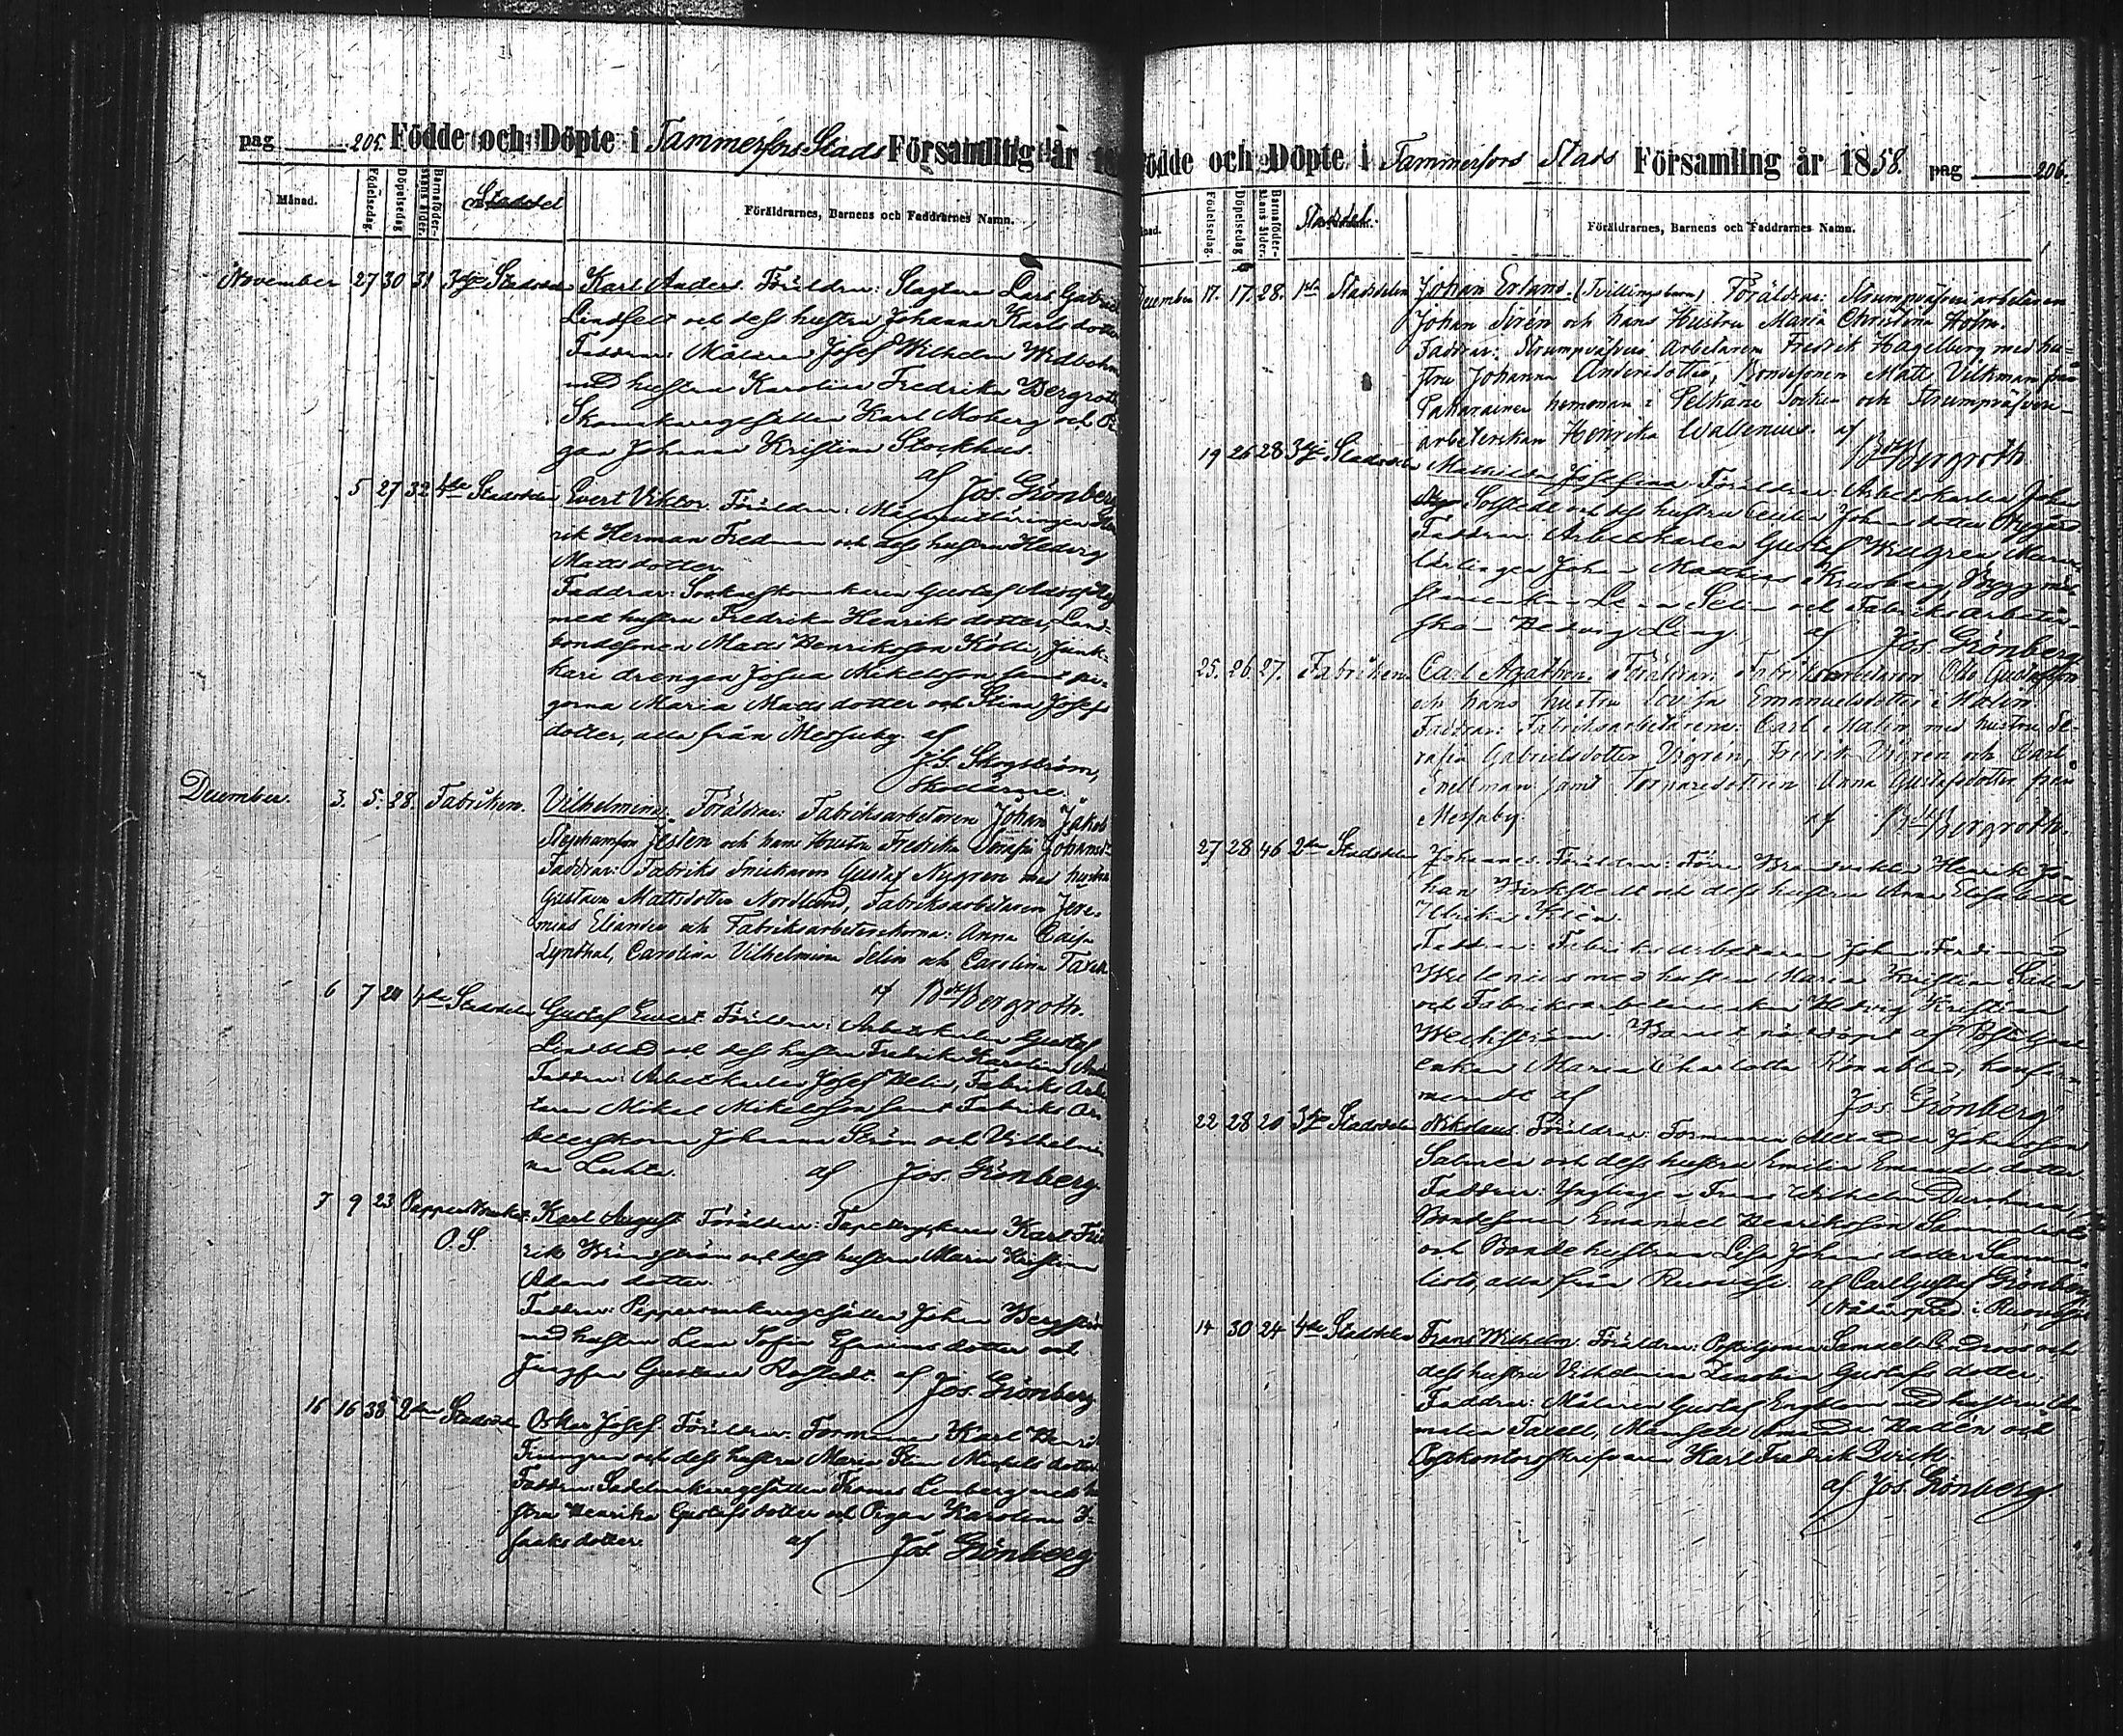 pag 205. Födde och Döpte i Tammerfors Stads Församling år 18
Månad. Födelsedag. Döpelsedag Barnaföderskans ålder. Stadsdel Föräldrarnes, Barnens och Faddrarnes Namn.
November 27 30 31 3dje Stadsdelen Karl Anders. Föräldrar: Slagtaren Lars Gabriel
Lindfelt och dess hustru Johanna Karlsdotter
Faddrar: Målaren Josef Wilhelm Widbohm
med hustru Karolina Fredrika Bergroth
Skomakaregesällen Karl Moberg och Pi
gan Johanna Kristina Stockhus.
af Jos. Grönberg
5 27 32 4de Stadsdelen Evert Viktor. Föräldrar: Hen
rik Herman Fredman och dess hustru Hedvig
Mattsdotter.
Faddrar: Sockneskomakaren Gustaf
med hustru Fredrika Henriksdotter, Land-
bondesonen Matts Henriksson Kölli, Junk-
kari drengen Josua Mikelsson samt pi-
gorna Maria Mattsdotter och Stina Josefs
dotter, alla från Messuby. af
J. G. Skogström,
December. 3. 5. 28. Fabriken. Vilhelmina. Föräldrar: Fabriksarbetaren Johan Jakob
Stephansson Jeslen och hans Hustru Fredrika Serafia Johansdr
Faddrar: Fabriks Snickaren Gustaf Nygren med hustru
Gustava Mattsdotter Nordlund, Fabriksarbetaren Jere-
mias Eliander och Fabriksarbeterskorna: Anna Caisa
Lynthal, Carolina Vilhelmina Selin och Carolina Taxell
af Bergroth.
6 7 20 4de Stadsdelen Gustaf Evert. Föräldrar: Arbetskarlen Gustaf
Lindblad och dess hustru Fredrika Karolina
Faddrar: Arbetskarlen Josef Helin, Fabriks Arbe
taren Mikel Mikelsson samt Fabriks Ar
beterskorna Johanna Ström och Vilhelmi
na Lehto. af Jos. Grönberg
7 9 23 Pappersbruket O.S. Karl August. Föräldrar: Tapettryckaren Karl Fred
rik Brandström och dess hustru Maria Kristina
Adams dotter.
Faddrar: Pappersmakaregesällen Johan Bergström
med hustru Lena Sofia Efraims dotter och
Jungfru Gustava Rostedt. af Jos. Grönberg
16 16 38 2dra Stadsdelen Oskar Josef. Föräldrar: Formannen Karl Henrik
och dess hustru Maria Stina Mickels dotter
Faddrar: Sadelmakaregesällen Thomas Lemberg med hu
stru Henrika Gustafsdotter och Pigan Karolina I-
saaks dotter. af Jos. Grönberg
Födde och Döpte i Tammerfors Stads Församling år 1858. pag 206.
Månad. Födelsedag. Döpelsedag Barnaföderskans ålder. Stadsdel. Föräldrarnes, Barnens och Faddrarnes Namn.
December 17. 17. 28. 1sta Stadsdelen Johan Erland. (Tvillingsbarn). Föräldrar: Strumpväfveriarbetaren
Johan Sirén och hans Hustru Maria Christina Holm.
Faddrar: Strumpväfveri Arbetaren Fredrik Hagelberg med hu-
stru Johanna Andersdotter, Bondesonen Matts Vilkman från
Pakarainen hemman i Pelkäne Socken och Strumpväfveri-
arbeterskan Henrika Wallenius. af
Bergroth
19 26 28 3dje Stadsdelen Mathilda Josefina. Föräldrar: Arbetskarlen Johan
Solstedt och dess hustru Cecilia Johansdotter Nygård
Faddrar: Arbetskarlen Gustaf Willgren, Murare
lärlingen Johan Matthias Krusberg, Byggmä-
Lena Selin och Fabriksarbeter-
skan Hedvig Ling. af Jos. Grönberg
25. 26. 27. Fabriken. Carl Agathon. Föräldrar: Fabriksarbetaren Otto Gustafsson
och hans hustru Lovisa Emanuelsdotter Malin
Faddrar: Fabriksarbetarena: Carl Malin med hustru Se-
rafia Gabrielsdotter Vigren, Fredrik Vigren och Carl
Snellman samt Torparedottren Anna Gustafsdotter från
Messuby. af Bergroth.
27 28 46 2dra Stadsdelen Johannes. Föräldrar: Förre Brandvakten Henrik Jo-
han Wirkstedt och dess hustru Anna Elisabeth
Ulrika
Faddrar: Fabriksarbetaren Johan Ferdinand
Welenius med hustru Maria Kristina
och Fabriksarbeterskan Hedvig Kristina
Weckström. Barnet nöddöpt af
enkan Maria Charlotta Rönnblad, konfir-
meradt af Jos. Grönberg
22 28 20 3dje Stadsdelen Nikolaus. Föräldrar: Formannen Alexander Johansson
Salmén och dess hustru Emilia Emanuelsdotter
Faddrar: Ynglingen Frans Wilhelm
Bondesonen Emanuel Henriksson
och Bondehustrun Lisa Johansdotter
alla från Ruovesi. af Carl Gustaf Grönberg
i Ruovesi
14 30 24 4de Stadsdelen Frans Wilhelm. Föräldrar: Postiljonen Samuel Lindroos och
dess hustru Vilhelmina Zenobia Gustafsdotter.
Faddrar: Målaren Gustaf Engblom med hustru A
malia Taxell, Mamsell Amanda Hallén och
Postkontorsskrifvaren Karl Fredrik
af Jos. Grönberg